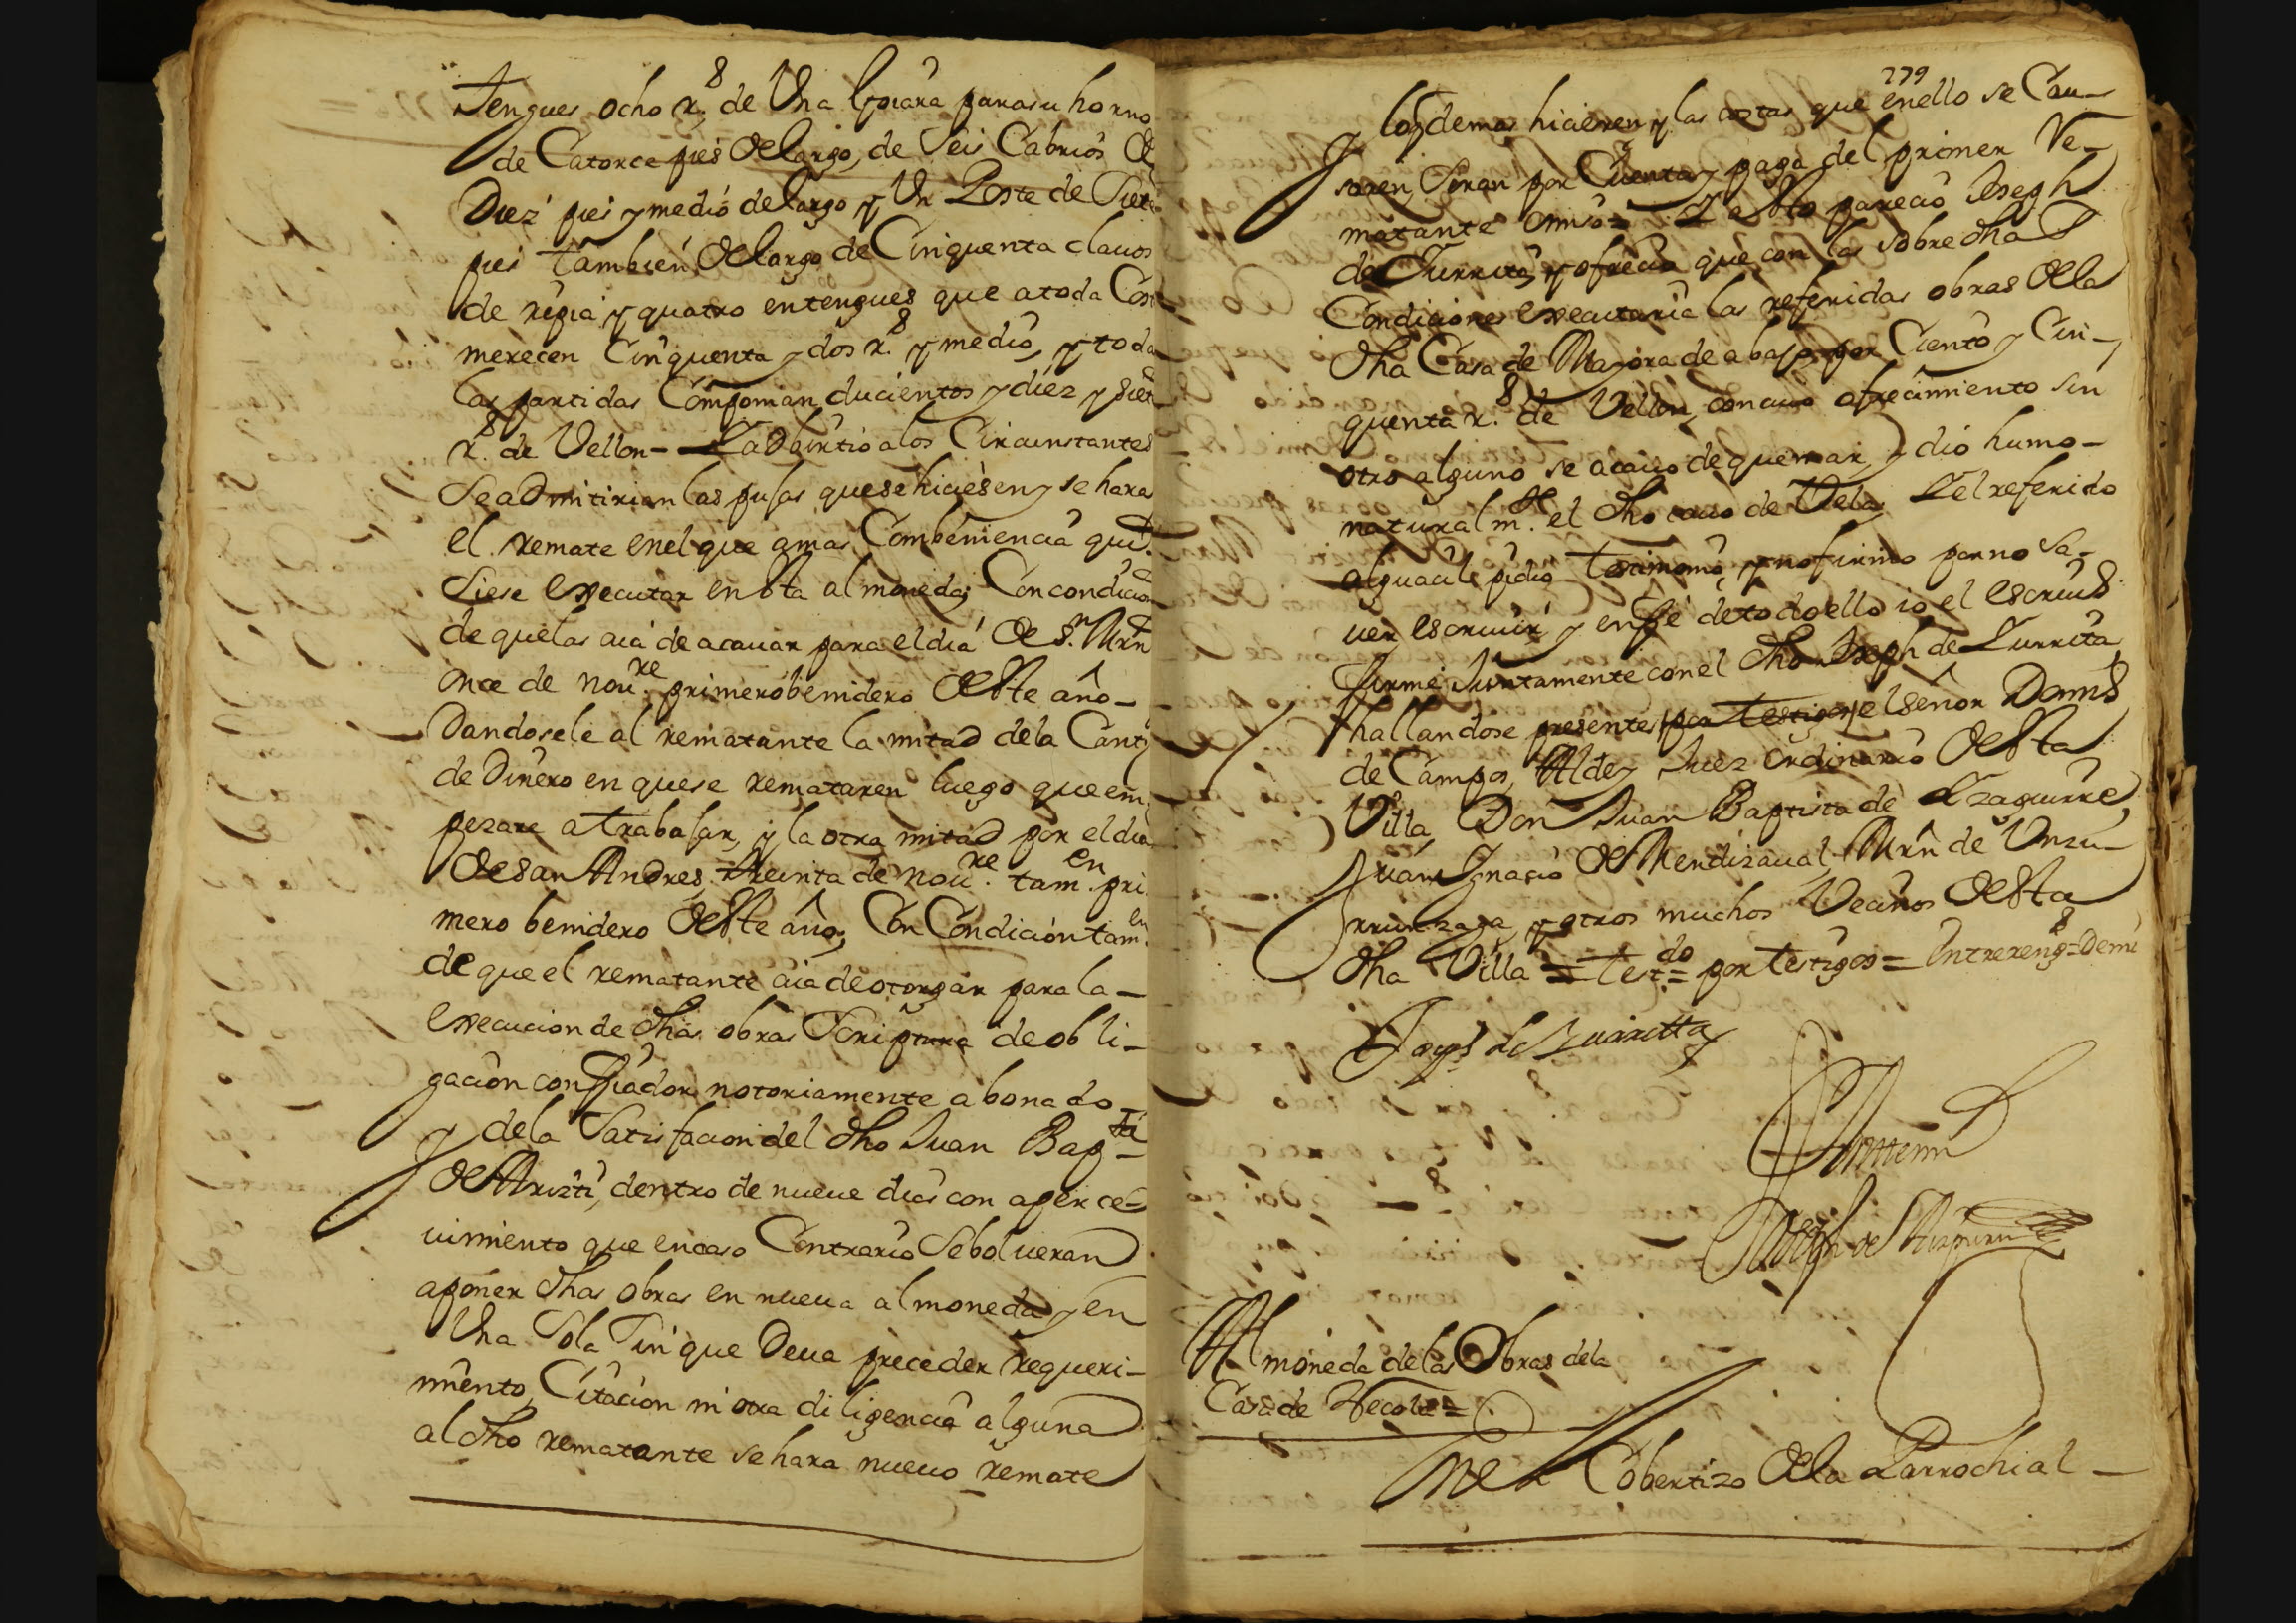 tengues ocho r.s de Una Goiara para su horno
de Catorce pies de largo, de Seis Cabrios de
Diez pies y medio de largo y Un Poste de Siete
pies tambien de largo de Cinquenta clauos
de ripia y quatro entengues que a toda Cos
merecen Cinquenta y dos r.s y medio, y toda
las partidas Componian ducientos y diez y siet
r.s de Vellon - Y adbirtio a los Circunstantes
Se admitirian las pujas que se hiciesen y se hara
el remate en el que a mas Combeniencia qui
siese executar en esta almoneda; Con condicion
de que las aia de acauar para el dia de S.n Mrn
once de nou.re primero benidero de este año -
Dandosele al rematante la mitad de la Cant
de Dinero en que se remataren luego que em
pezare a trabajar, y la otra mitad por el dia
de San Andres, treinta de nou.re tam.en pri
mero benidero de este año, Con Condicion tam.en
de que el rematante aia de otorgar para la -
execucion de dhas obras Scriptura de obli-
gacion con fiador notoriamente abonado
y de la Satisfacion del dho Juan Bap.ta
de Arizti, dentro de nueue dias con aperce-
uimiento que en caso Contrario Se bolueran
a poner dhas obras en nueua almoneda y en
Una Sola Sin que Deua preceder requeri-
miento, Citacion ni otra diligencia alguna
al dho rematante se hara nueuo remate
279
y los demas hicieren y las costas que en ello se Cau-
saren, Seran por Cuenta y paga del primer Re-
matante omiso = Y a esto parecio Joseph
de Zurrita, y ofrecio que con las sobre dhas
Condiciones executaria las referidas obras de la
dha Casa de Mayora de abajo, por Ciento y Cin-
quenta r.s de Vellon, con cuio ofrecimiento sin
otro alguno se acauo de quemar, y dio humo -
natural m.te el dho cauo de Vela, Y el referido
alguacil pidio testimonio, y no firmo por no Sa-
uer escriuir y en fe de todo ello io el escriu.o
firme Juntamente con el dho Joseph de Zurrita,
hallandose presentes por testigos el señor Dom.o
de Campos, Alde y Juez ordinario de esta
Villa, Don Juan Baptista de Yzaguirre,
Juan Ygnacio de Mendizaual, Mrn de Unzu-
rrunzaga, y otros muchos Vecinos de esta
dha Villa = test.do = por testigos = Entrereng.s = Deme
Joseph de Zurritta
Antemi
Joseph de Aizpuru
Almoneda de las Obras de la
Casa de Yecola =
En el Cobertizo de la Parrochial -